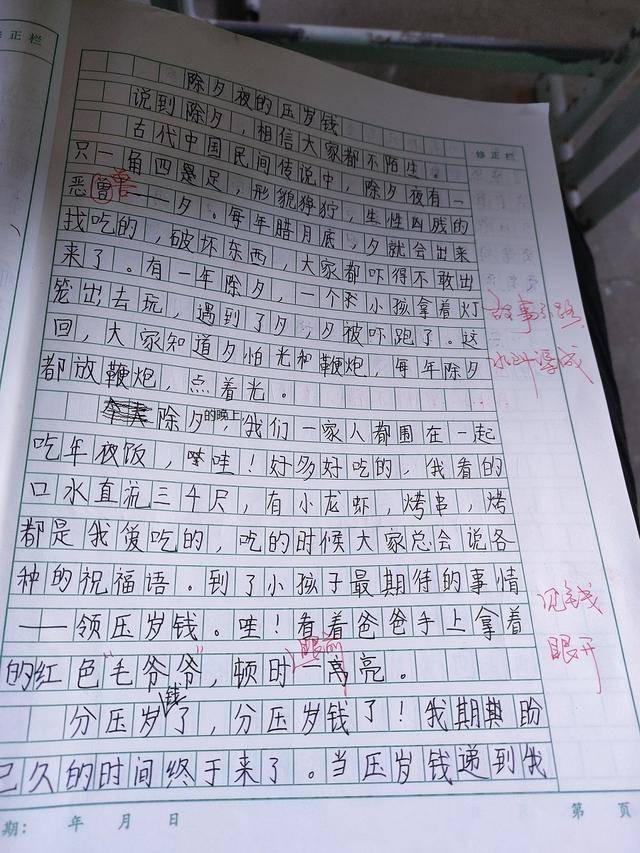 修正栏
除夕夜的压岁钱
说到除夕，相信大家都不陌生。
古代中国民间传说中，除夕夜有一
只一角四足，形貌狰狞，生性凶残的
恶兽——夕。每年腊月底，夕就会出来
找吃的，破坏东西，大家都吓得不敢出
来了。有一年除夕，一个小孩拿着灯
笼出去玩，遇到了夕，夕被吓跑了。这
回，大家知道夕怕光和鞭炮，每年除夕
都放鞭炮，点着光。
除夕的晚上，我们一家人都围在一起
吃年夜饭，哇！好多好吃的，我看的
口水直流三千尺，有小龙虾，烤串，烤
都是我爱吃的，吃的时候大家总会说各
种的祝福语。到了小孩子最期待的事情
——领压岁钱。哇！看着爸爸手上拿着
的红色"毛爷爷"，顿时眼前一亮。
分压岁钱了，分压岁钱了！我期盼
已久的时间终于来了。当压岁钱递到我
修正栏
见钱
眼开
期：　年　月　日
第　页